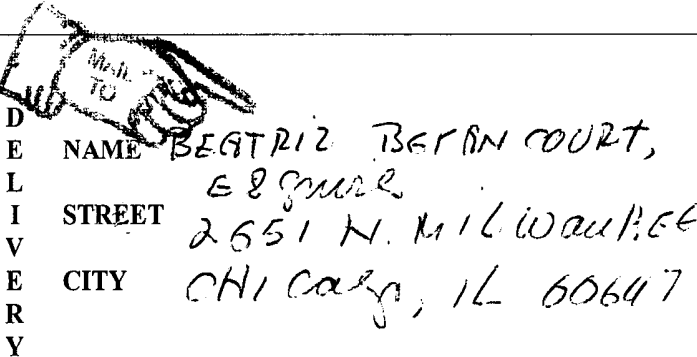 MAIL TO
DELIVERY
NAME BEATRIZ BETAN COURT,
ESquire
STREET 2651 N. MILWAUKEE
CITY CHICago, IL 60647